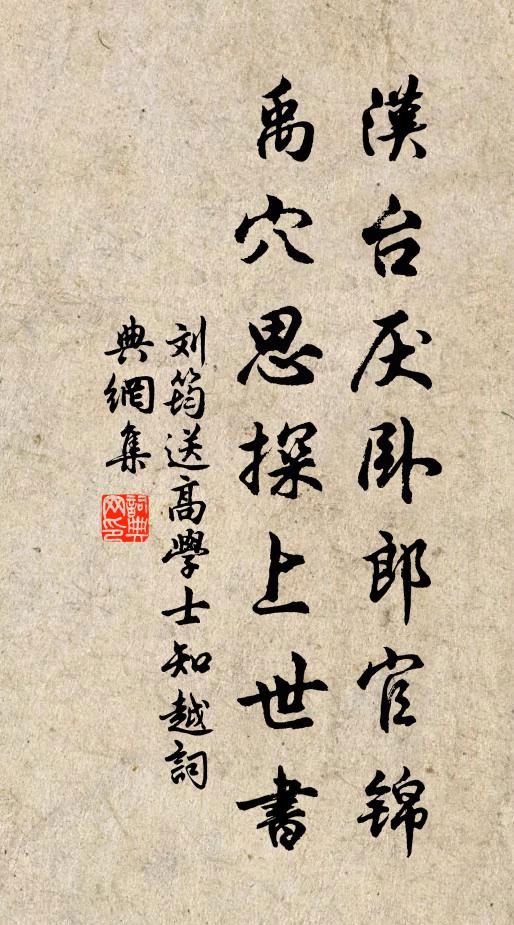 漢台厌卧郎官锦
禹穴思探上世書
刘筠送高學士知越詞
典網集
詞典
网印